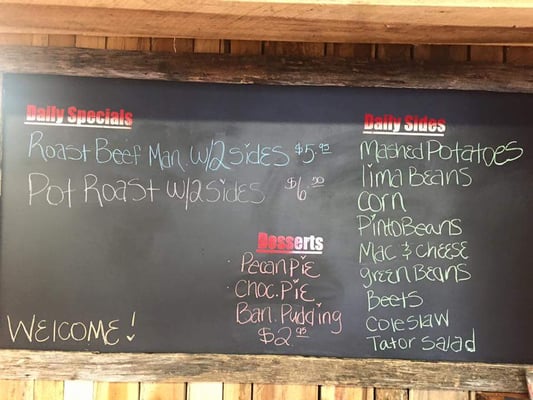 Daily Specials
Roast Beef Man. w/2 sides $5.95
Pot Roast w/2 sides $6.50
Desserts
Pecan Pie
Choc. Pie
Ban. Pudding
$2.95
WELCOME!
Daily Sides
Mashed Potatoes
lima Beans
corn
Pinto Beans
Mac & cheese
green Beans
Beets
coleslaw
Tator salad